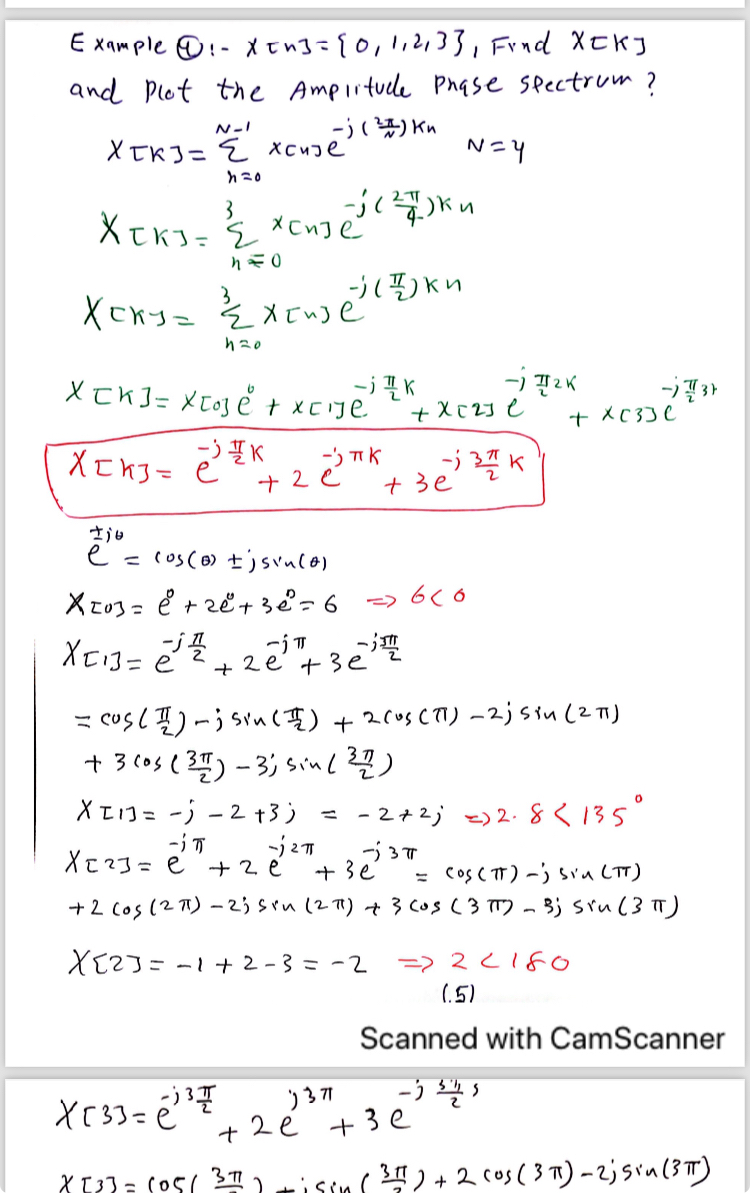 Example ①:- x[n]={0,1,2,3}, Find X[K]
and Plot the Amplitude Phase spectrum ?
X[K]= Σ_{n=0}^{N-1} x[n]e^{-j(2π/N)Kn} N=4
X[K]= Σ_{n=0}^{3} x[n]e^{-j(2π/4)Kn}
X[K]= Σ_{n=0}^{3} x[n]e^{-j(π/2)Kn}
X[K]= x[0]e^0 + x[1]e^{-jπ/2 K} + x[2]e^{-jπ/2 2K} + x[3]e^{-jπ/2 3k}
X[K]= e^{-jπ/2 K} + 2e^{-jπK} + 3e^{-j3π/2 K}
e^{±jθ} = cos(θ) ±jsin(θ)
X[0]= e^0 + 2e^0 + 3e^0 = 6 => 6<0
X[1]= e^{-jπ/2} + 2e^{-jπ} + 3e^{-j3π/2}
= cos(π/2) -j sin(π/2) + 2cos(π) -2j sin(2π)
+ 3cos(3π/2) -3j sin(3π/2)
X[1]= -j -2 +3j = -2+2j => 2.8 < 135°
X[2]= e^{-jπ} + 2e^{-j2π} + 3e^{-j3π} = cos(π) -j sin(π)
+2cos(2π) -2j sin(2π) + 3cos(3π) - 3j sin(3π)
X[2]= -1+2-3 = -2 => 2<180
(.5)
Scanned with CamScanner
X[3]= e^{-j3π/2} + 2e^{j3π} + 3e
X[3]= cos(3π/2) -jsin(3π/2) + 2cos(3π) -2j sin(3π)